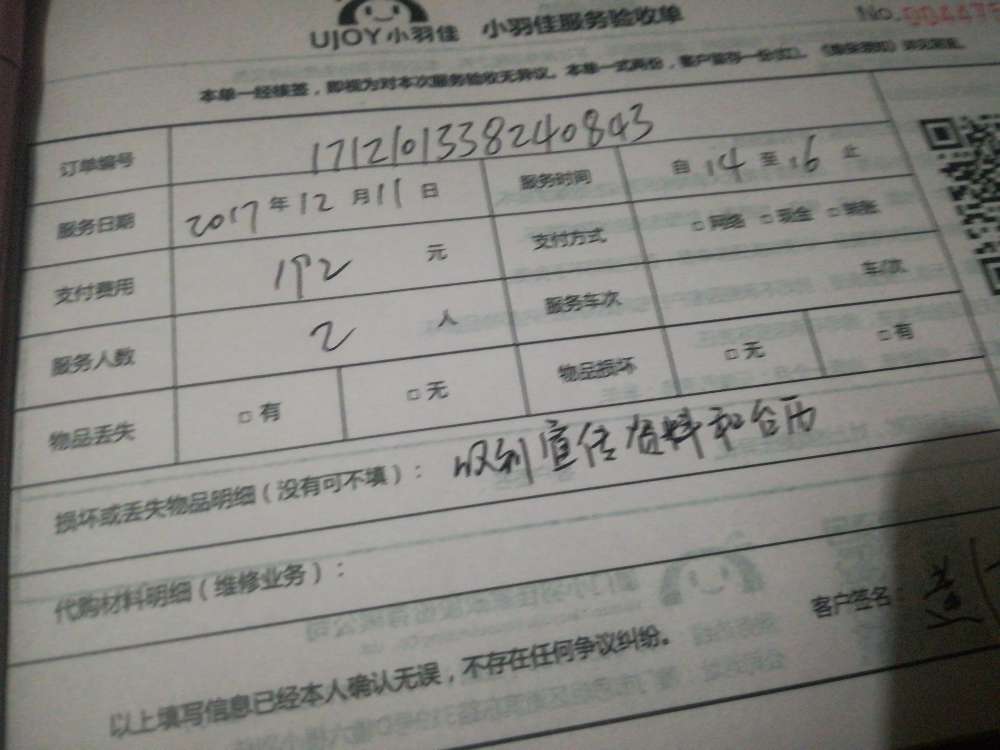 UJOY小羽佳 小羽佳服务验收单 No.
本单一经核签，即视为对本次服务验收无异议。本单一式两份，客户留存一份
订单编号 1712101338240843
服务日期 2017年12月11日 服务时间 自14至16止
支付费用 192元 支付方式 □网络 □现金 □转账
服务人数 2人 服务车次 车/次
物品丢失 □有 □无 物品损坏 □无 □有
损坏或丢失物品明细（没有可不填）： 收到宣传资料和台历
代购材料明细（维修业务）：
客户签名：
以上填写信息已经本人确认无误，不存在任何争议纠纷。